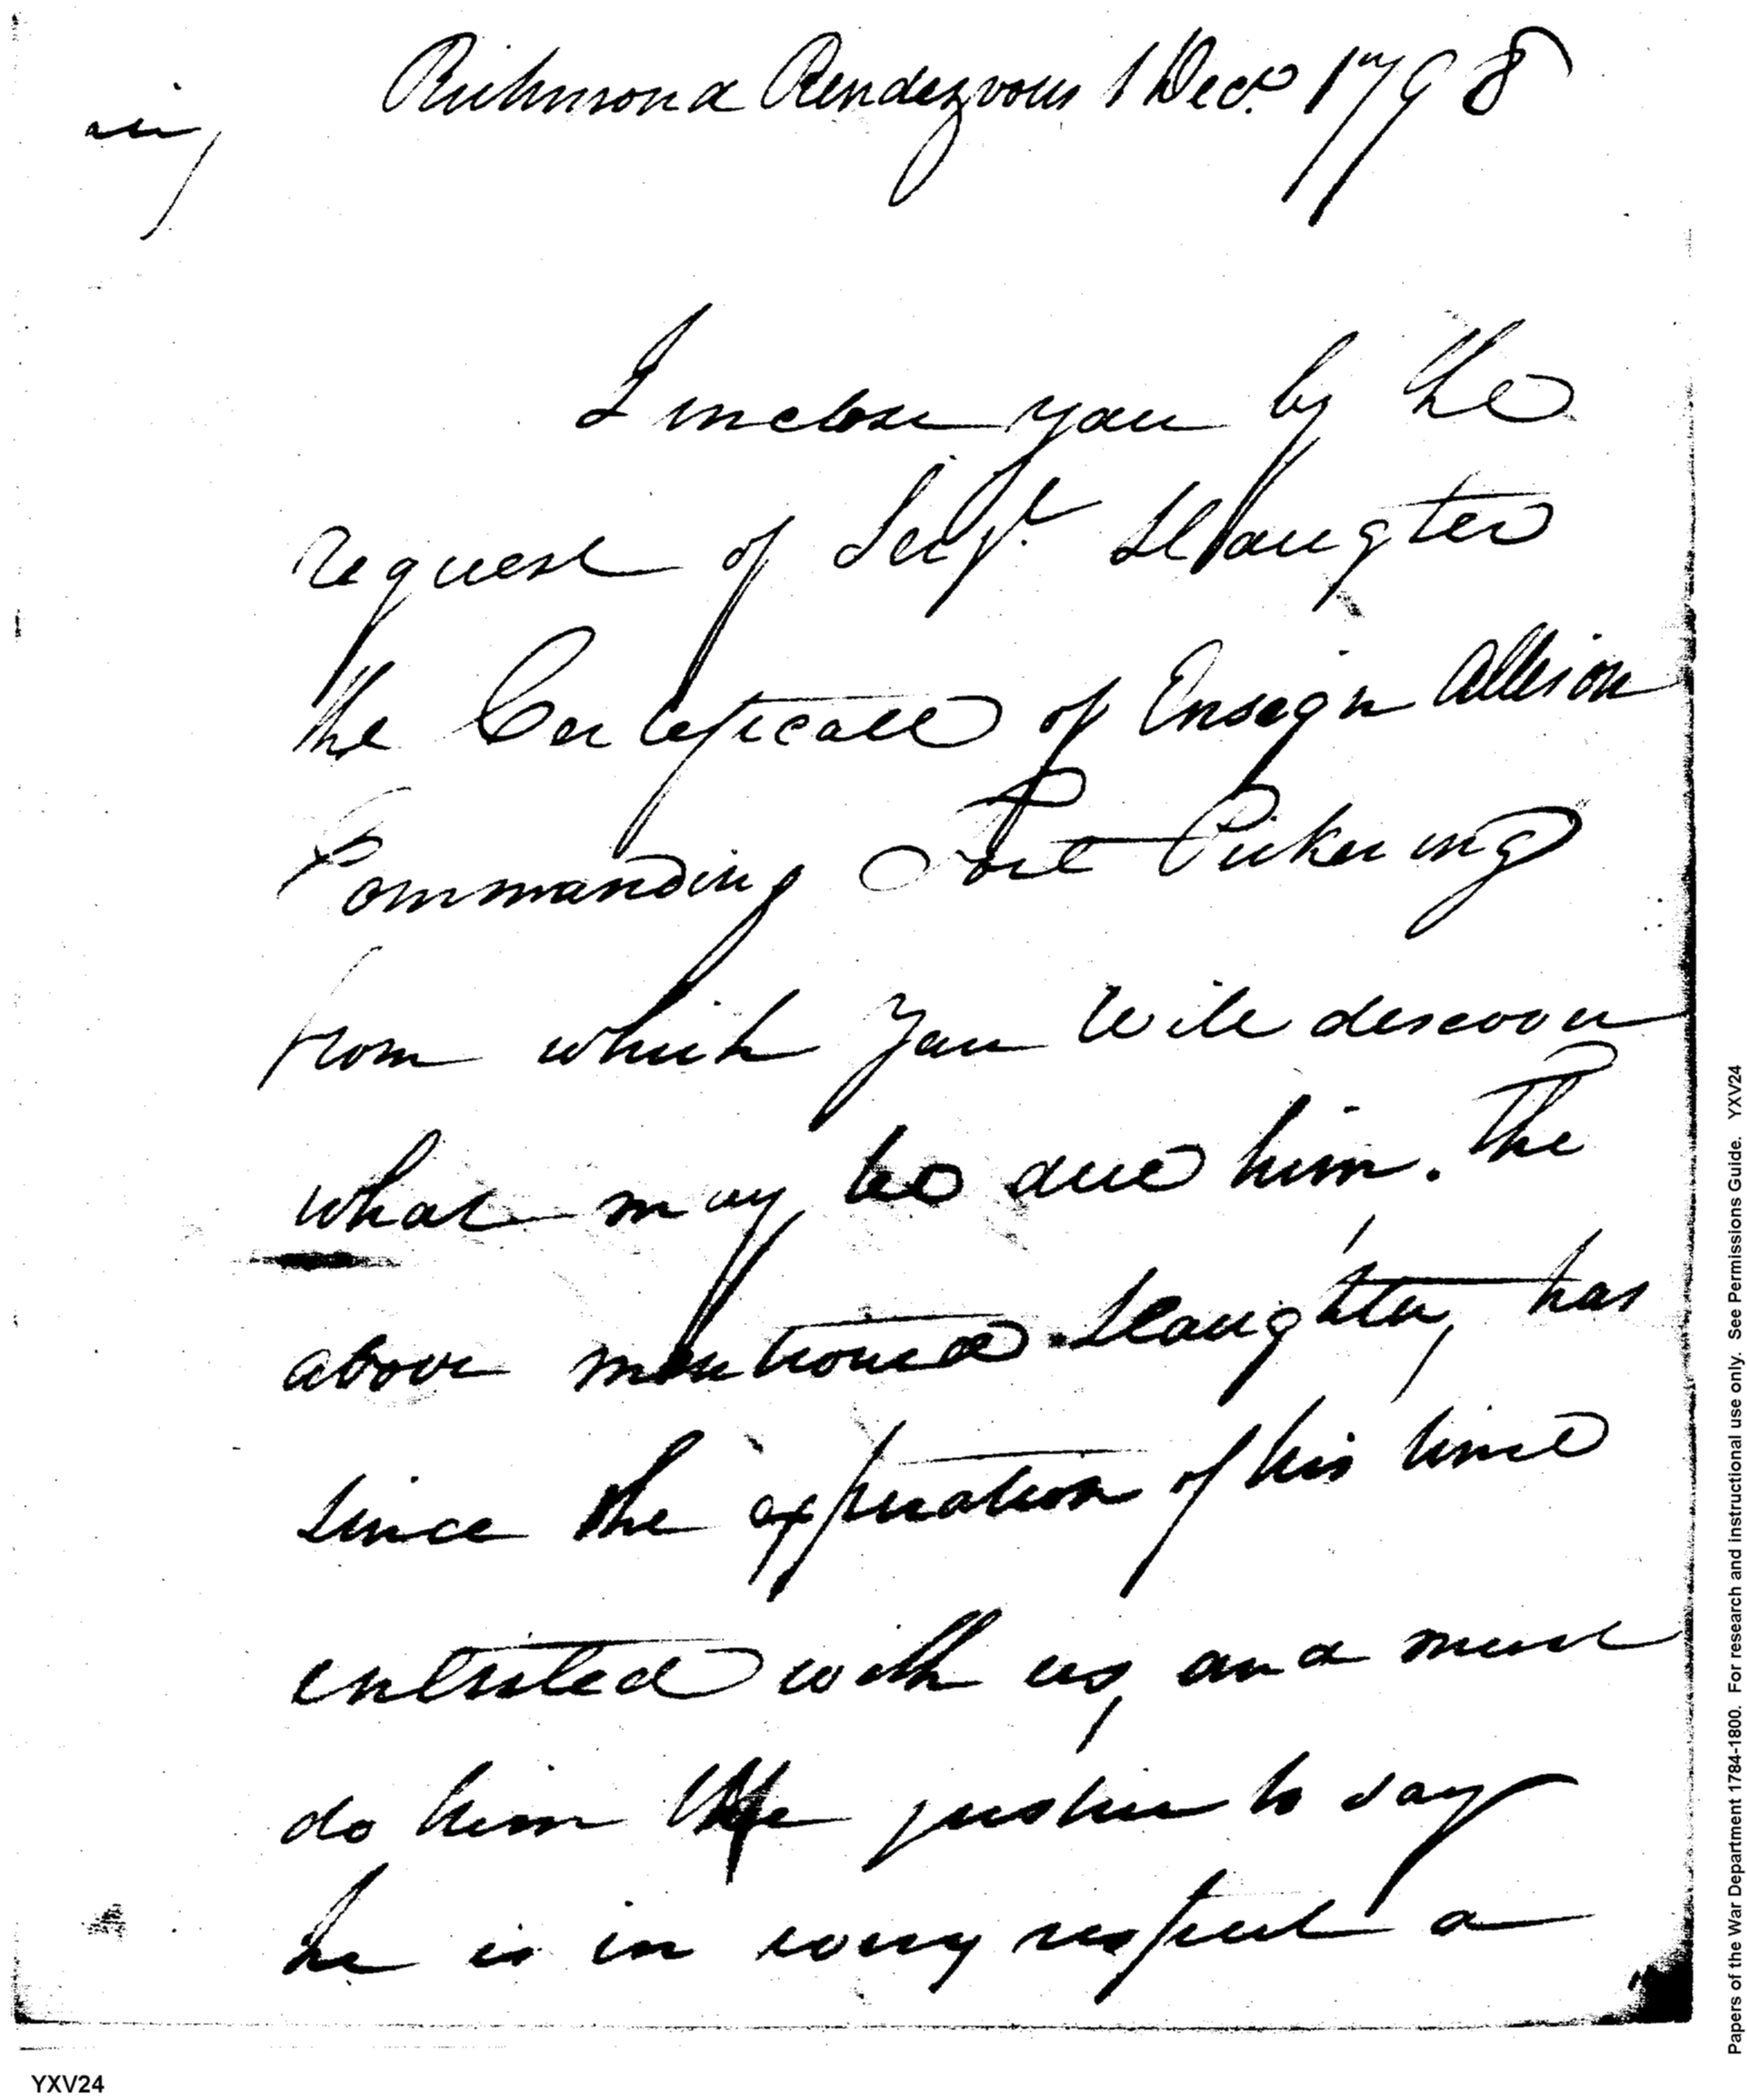 Richmond Rendezvous 1 Decr. 1798
Sir,
I inclose you by the
request of Serjt. Slaugter
the Certificate of Ensign Allison
Commanding Fort Pickering
from which you will discover
what may be due him. The
above mentioned Slaughter, has
since the expiration of his time
enlisted with us, and must
do him the justice to say
he is in every respect a
Papers of the War Department 1784-1800. For research and instructional use only. See Permissions Guide. YXV24
YXV24